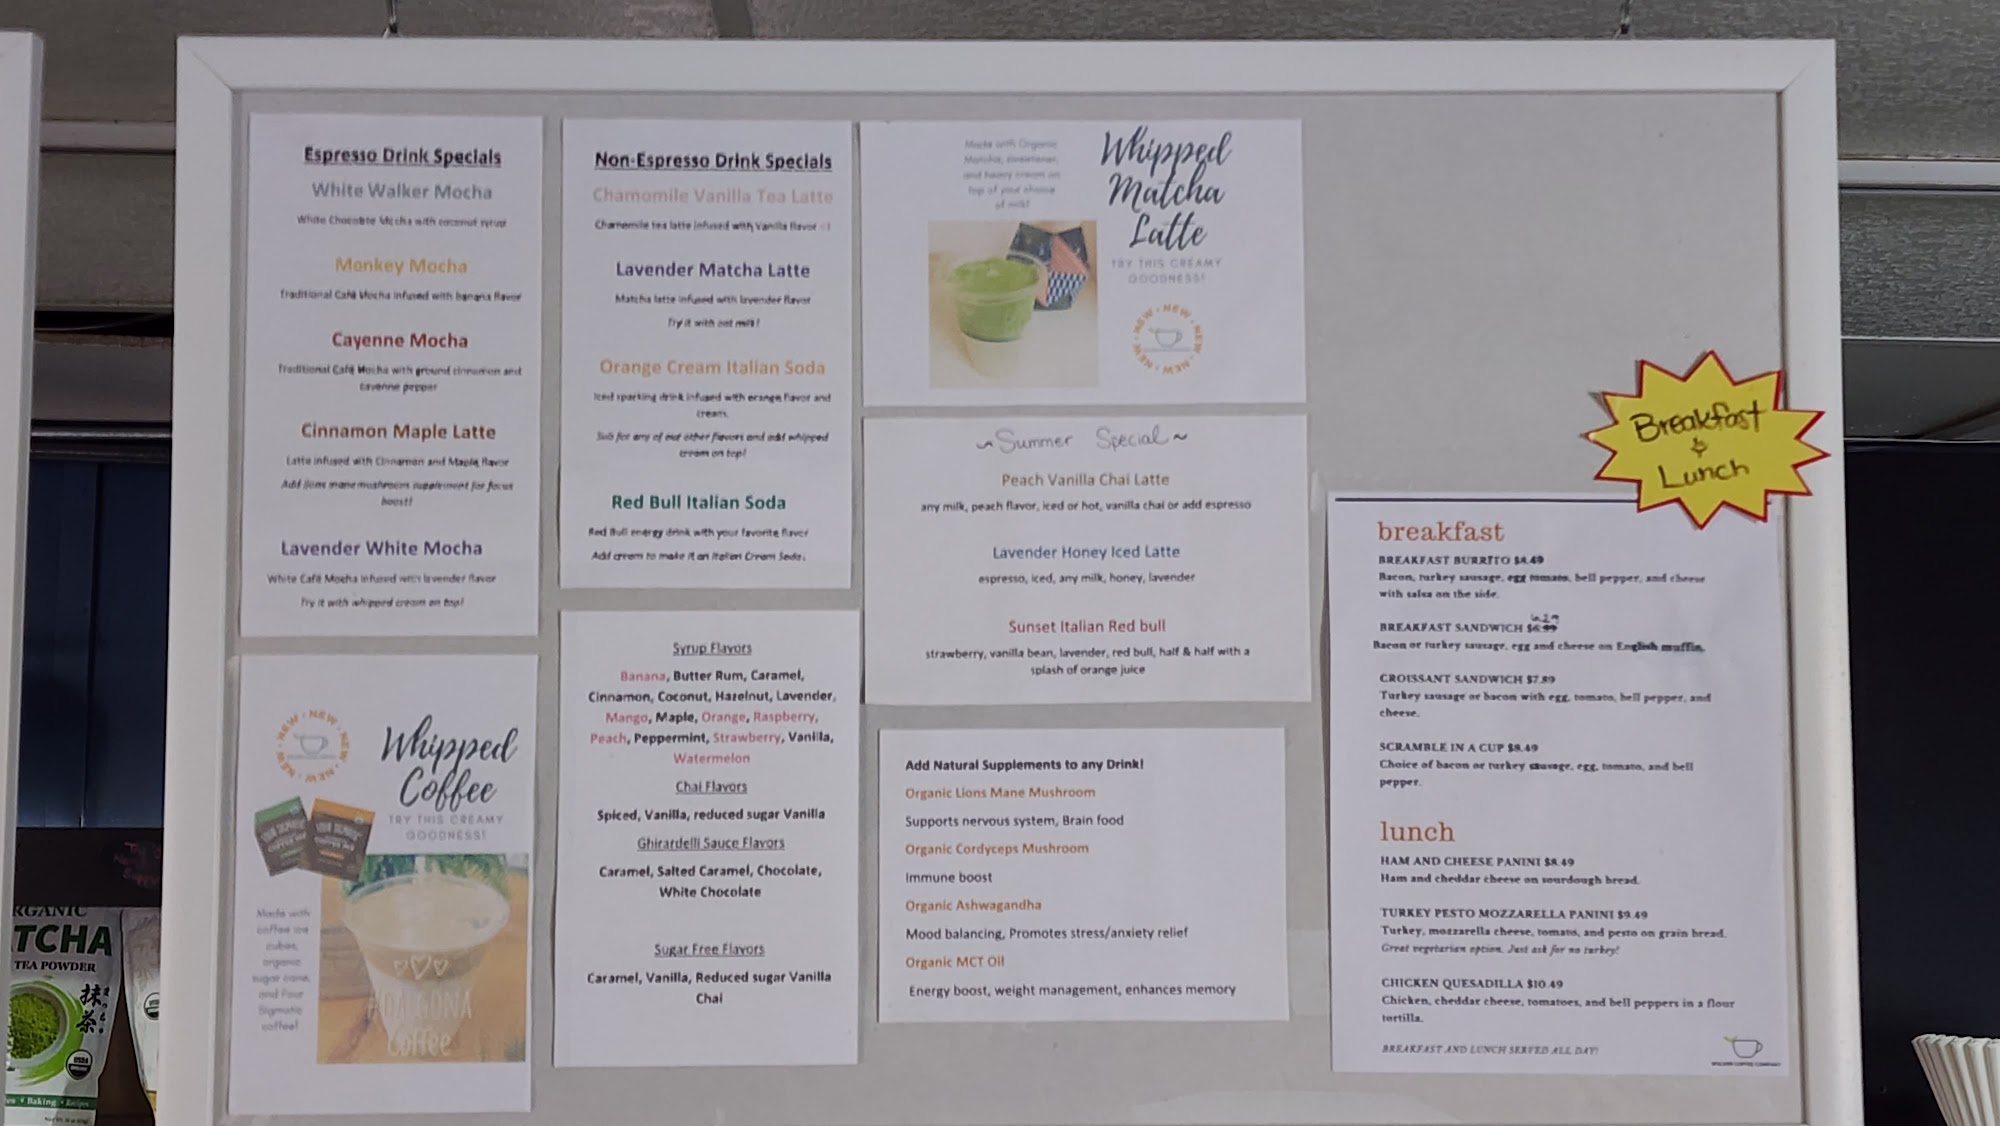 Espresso Drink Specials
White Walker Mocha
White Chocolate Mocha with coconut syrup
Monkey Mocha
Traditional Café Mocha infused with banana flavor
Cayenne Mocha
Traditional Café Mocha with ground cinnamon and
cayenne pepper
Cinnamon Maple Latte
Latte infused with Cinnamon and Maple flavor
Add lions mane mushroom supplement for focus
boost!
Lavender White Mocha
White Café Mocha infused with lavender flavor
Try it with whipped cream on top!
NEW • NEW • NEW • NEW
Whipped
Coffee
TRY THIS CREAMY
GOODNESS!
Made with
coffee ice
cubes,
organic
sugar cane,
and Four
Sigmatic
coffee!
DALGONA
Coffee
Non-Espresso Drink Specials
Chamomile Vanilla Tea Latte
Chamomile tea latte infused with Vanilla flavor :)
Lavender Matcha Latte
Matcha latte infused with lavender flavor
Try it with oat milk!
Orange Cream Italian Soda
Iced sparking drink infused with orange flavor and
cream.
Sub for any of our other flavors and add whipped
cream on top!
Red Bull Italian Soda
Red Bull energy drink with your favorite flavor
Add cream to make it an Italian Cream Soda.
Syrup Flavors
Banana, Butter Rum, Caramel,
Cinnamon, Coconut, Hazelnut, Lavender,
Mango, Maple, Orange, Raspberry,
Peach, Peppermint, Strawberry, Vanilla,
Watermelon
Chai Flavors
Spiced, Vanilla, reduced sugar Vanilla
Ghirardelli Sauce Flavors
Caramel, Salted Caramel, Chocolate,
White Chocolate
Sugar Free Flavors
Caramel, Vanilla, Reduced sugar Vanilla
Chai
Made with Organic
Matcha, sweetener,
and heavy cream on
top of your choice
of milk!
Whipped
Matcha
Latte
TRY THIS CREAMY
GOODNESS!
NEW • NEW • NEW • NEW
~Summer Special~
Peach Vanilla Chai Latte
any milk, peach flavor, iced or hot, vanilla chai or add espresso
Lavender Honey Iced Latte
espresso, iced, any milk, honey, lavender
Sunset Italian Red bull
strawberry, vanilla bean, lavender, red bull, half & half with a
splash of orange juice
Add Natural Supplements to any Drink!
Organic Lions Mane Mushroom
Supports nervous system, Brain food
Organic Cordyceps Mushroom
Immune boost
Organic Ashwagandha
Mood balancing, Promotes stress/anxiety relief
Organic MCT Oil
Energy boost, weight management, enhances memory
Breakfast
&
Lunch
breakfast
BREAKFAST BURRITO $8.49
Bacon, turkey sausage, egg tomato, bell pepper, and cheese
with salsa on the side.
BREAKFAST SANDWICH $6.99
Bacon or turkey sausage, egg and cheese on English muffin.
CROISSANT SANDWICH $7.89
Turkey sausage or bacon with egg, tomato, bell pepper, and
cheese.
SCRAMBLE IN A CUP $8.49
Choice of bacon or turkey sausage, egg, tomato, and bell
pepper.
lunch
HAM AND CHEESE PANINI $8.49
Ham and cheddar cheese on sourdough bread.
TURKEY PESTO MOZZARELLA PANINI $9.49
Turkey, mozzarella cheese, tomato, and pesto on grain bread.
Great vegetarian option. Just ask for no turkey!
CHICKEN QUESADILLA $10.49
Chicken, cheddar cheese, tomatoes, and bell peppers in a flour
tortilla.
BREAKFAST AND LUNCH SERVED ALL DAY!
RGANIC
TCHA
TEA POWDER
抹茶
USDA
Baking • Recipes